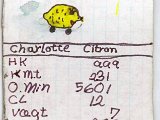 Charlotte Citron
HK aaa
Kmt 231
O.Min 5601
CL 12
vægt 7